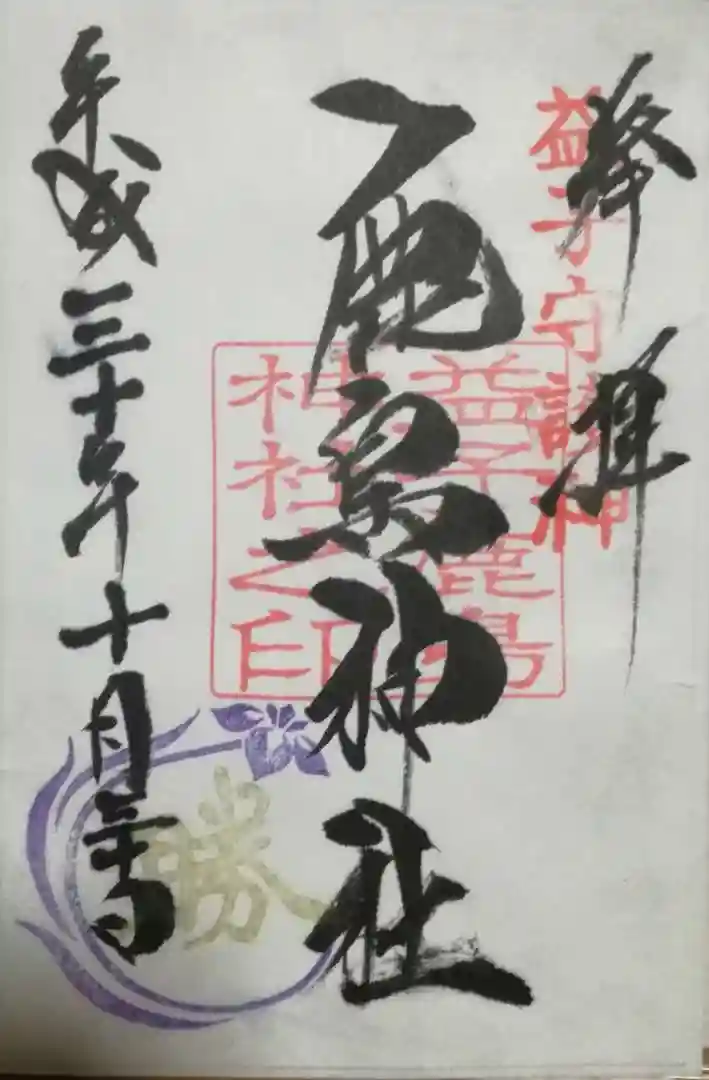 奉拝
益子守護神
鹿島神社
益子鹿島
神社之印
平成三十年十月
勝